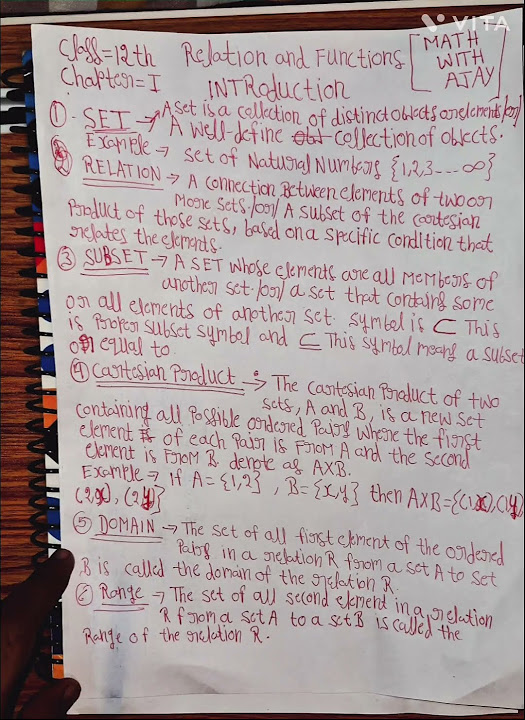 VITA
Class=12th Relation and Functions [MATH WITH AJAY]
Chapter=I INTRoduction
① - SET → A set is a collection of distinct objects or elements/or/
A well-define collection of objects.
Example → set of Natural Numbers {1,2,3 --- ∞}
② RELATION → A connection Between elements of two or
More sets./or/ A subset of the cartesian
Product of those sets, based on a specific condition that
relates the elements.
③ SUBSET → A SET whose elements are all Members of
another set./or/ a set that contains some
or all elements of another set. symbol is ⊂ This
is Proper subset symbol and ⊆ This symbol means a subset
or equal to.
④ Cartesian Product → The cartesian Product of two
sets, A and B, is a new set
containing all Possible ordered Pairs where the first
element of each Pair is From A and the second
element is From B. denote as AXB.
Example → If A = {1,2} , B = {x,y} then AXB={(1,x),(1,y)
(2,x), (2,y)}
⑤ DOMAIN → The set of all first element of the ordered
Pairs in a relation R from a set A to set
B is called the domain of the relation R.
⑥ Range → The set of all second element in a relation
R from a set A to a set B is called the
Range of the relation R.